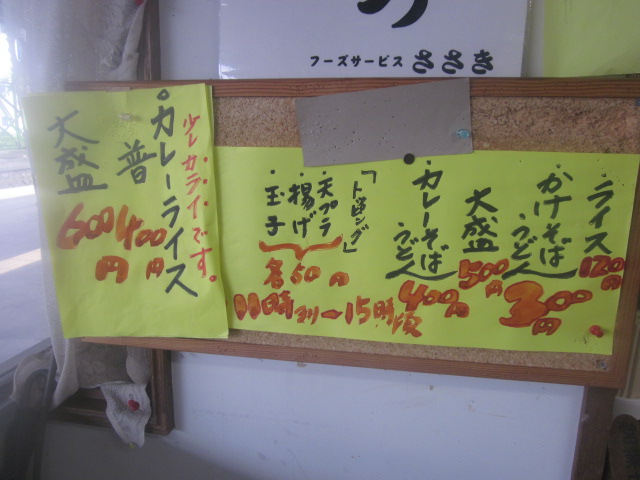 フーズサービス ささき
ライス
120円
かけそば
うどん
300円
大盛
500円
カレーそば
うどん
400円
「トッピング」
天プラ
揚げ
玉子
各50円
11時より〜15時頃
・カレーライス
少しカライです。
普
400円
大盛
600円